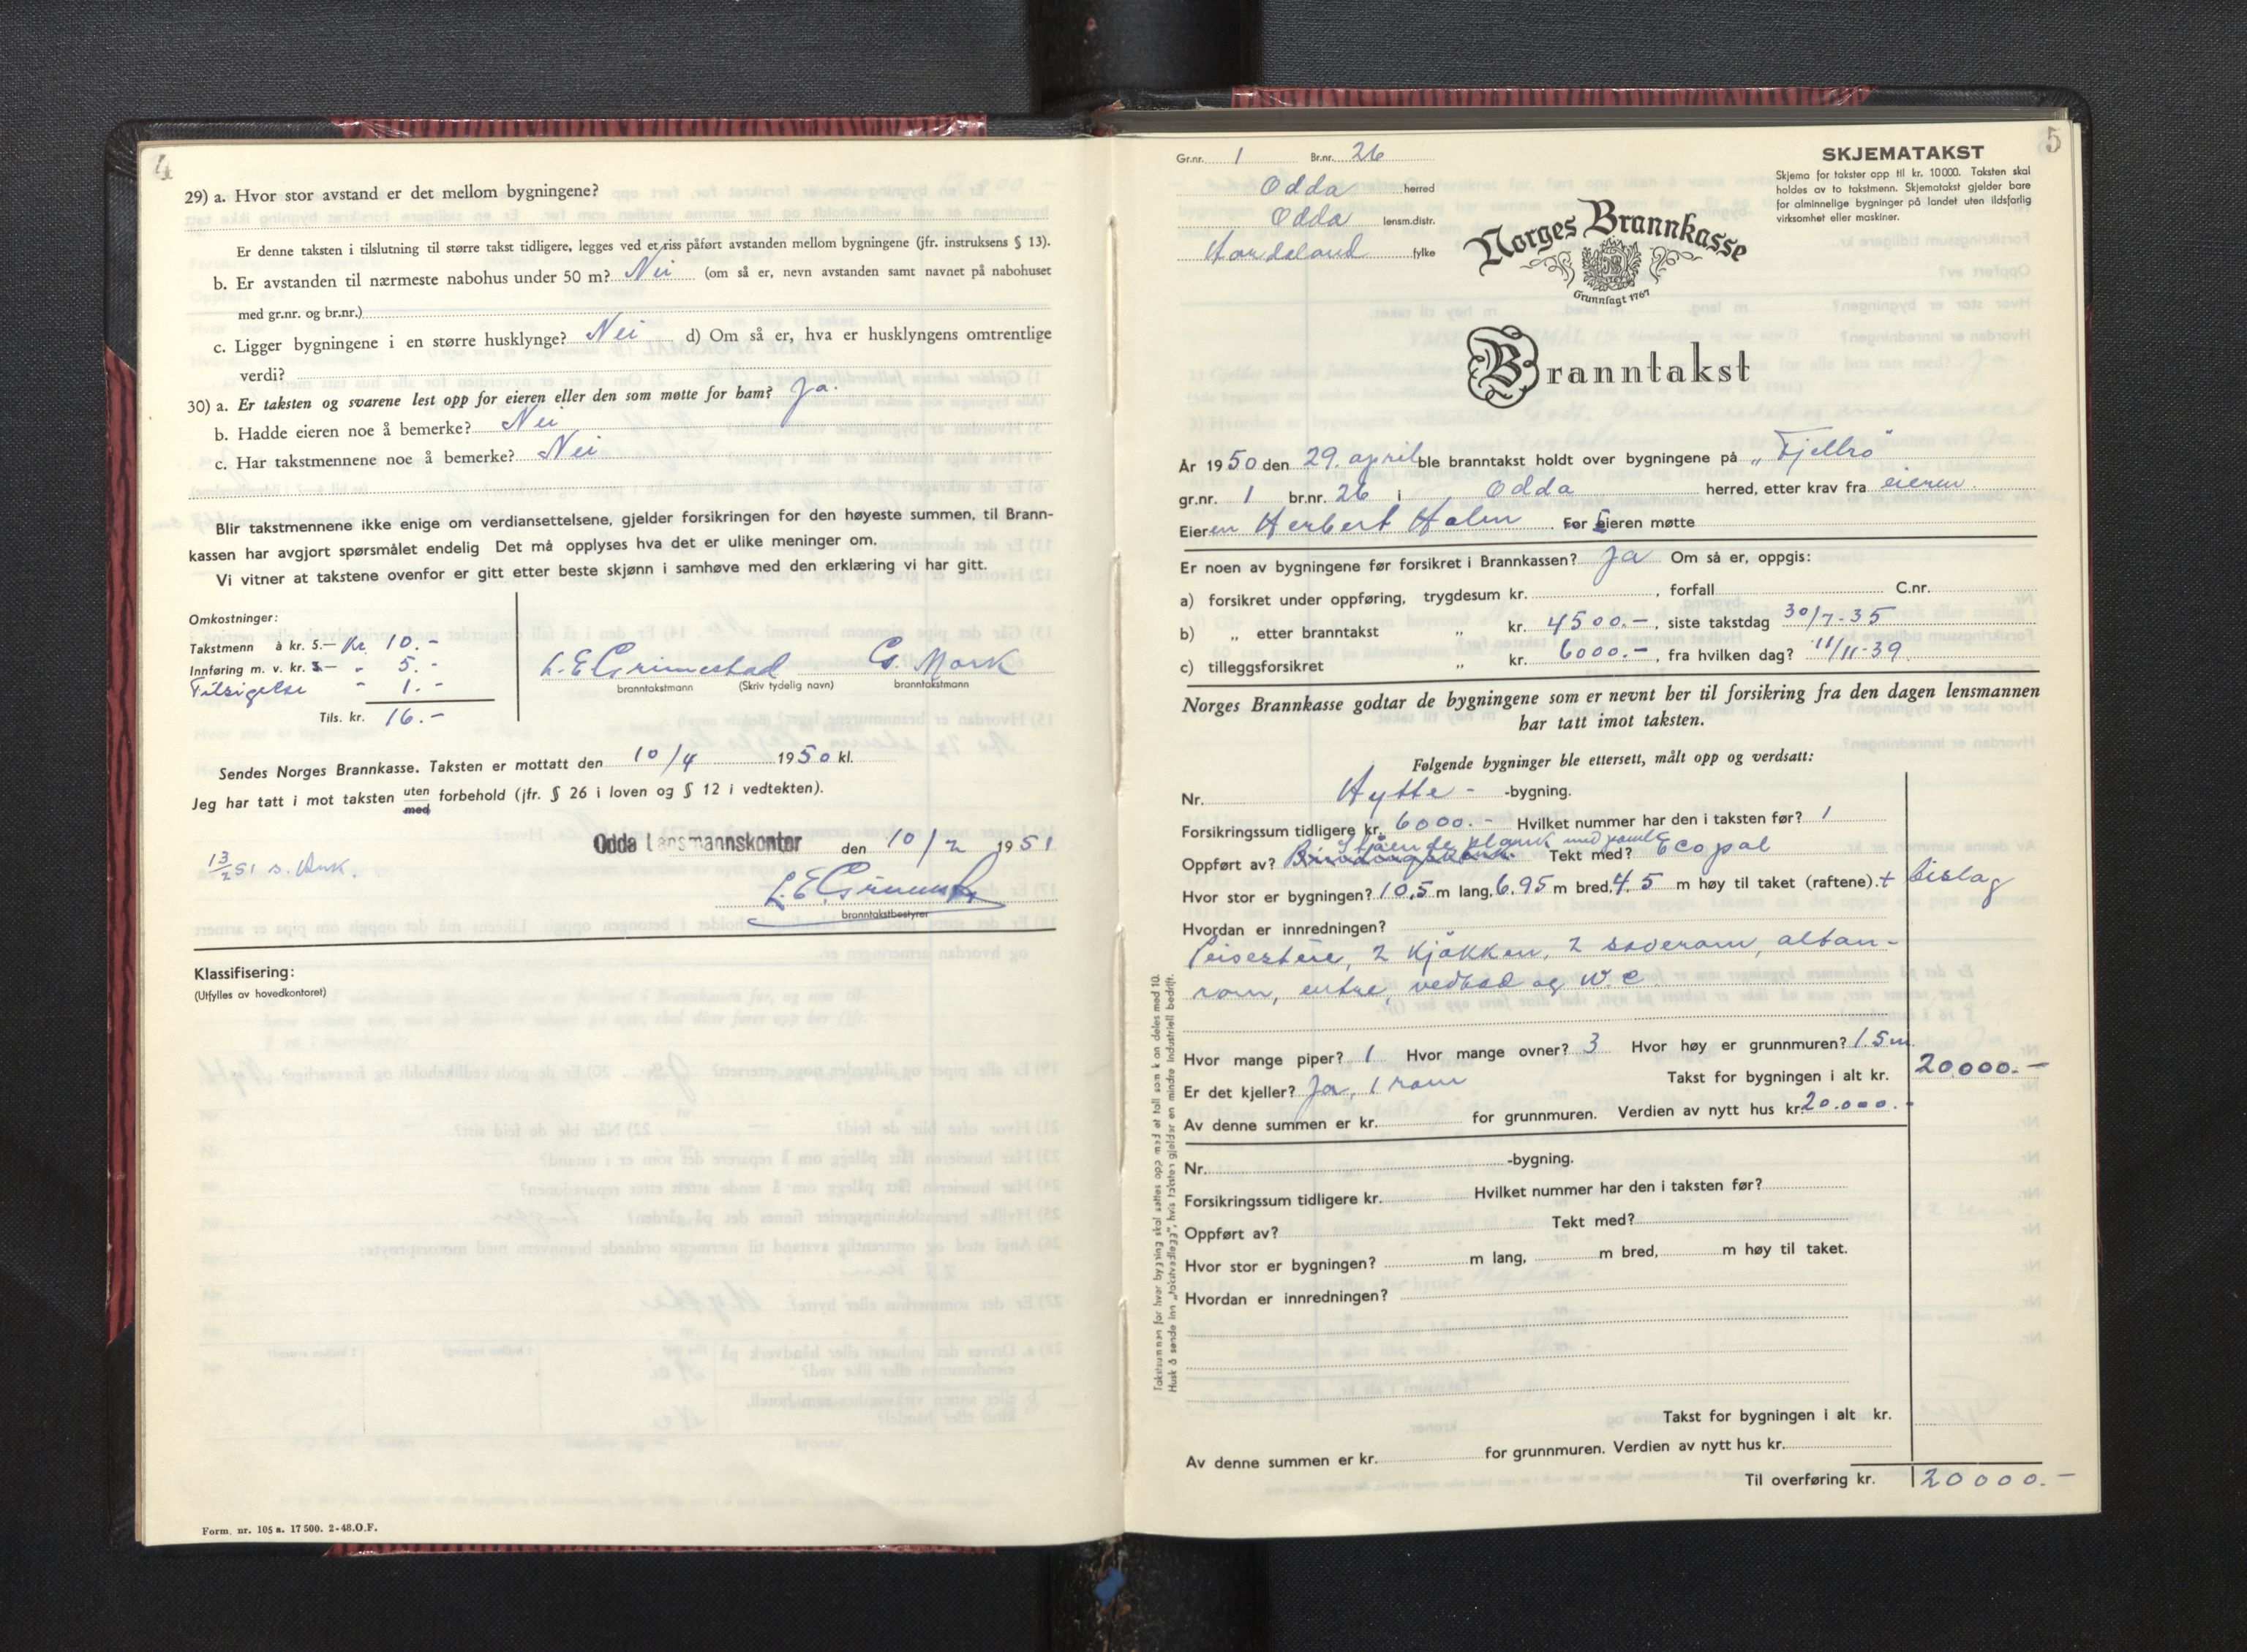 4
29) a. Hvor stor avstand er det mellom bygningene?
Er denne taksten i tilslutning til større takst tidligere, legges ved et riss påført avstanden mellom bygningene (jfr. instruksens § 13).
b. Er avstanden til nærmeste nabohus under 50 m? Nei (om så er, nevn avstanden samt navnet på nabohuset
med gr.nr. og br.nr.)
c. Ligger bygningene i en større husklynge? Nei d) Om så er, hva er husklyngens omtrentlige
verdi?
30) a. Er taksten og svarene lest opp for eieren eller den som møtte for ham? Ja.
b. Hadde eieren noe å bemerke? Nei
c. Har takstmennene noe å bemerke? Nei
Blir takstmennene ikke enige om verdiansettelsene, gjelder forsikringen for den høyeste summen, til Brann-
kassen har avgjort spørsmålet endelig Det må opplyses hva det er ulike meninger om.
Vi vitner at takstene ovenfor er gitt etter beste skjønn i samhøve med den erklæring vi har gitt.
Omkostninger:
Takstmenn à kr. 5.— Kr. 10.-
Innføring m. v. kr. 3.— - 5.-
Tilsigelse - 1.-
Tils. kr. 16.-
L. E. Grimestad G. Mork
branntakstmann (Skriv tydelig navn) branntakstmann
Sendes Norges Brannkasse. Taksten er mottatt den 10/4 1950 kl.
Jeg har tatt i mot taksten uten med forbehold (jfr. § 26 i loven og § 12 i vedtekten).
Odda Lensmannskontor den 10/2 1951
13/2 51 s.
branntakstbestyrer
Klassifisering:
(Utfylles av hovedkontoret)
Form. nr. 105 a. 17 500. 2-48. O.F.
5
Gr.nr. 1 Br.nr. 26
Odda herred
Odda lensm.distr.
Hordaland fylke
SKJEMATAKST
Skjema for takster opp til kr. 10000. Taksten skal
holdes av to takstmenn. Skjematakst gjelder bare
for alminnelige bygninger på landet uten ildsfarlig
virksomhet eller maskiner.
Norges Brannkasse
Grunnlagt 1767
Branntakst
År 1950 den 29. april ble branntakst holdt over bygningene på „Fjellro
gr.nr. 1 br.nr. 26 i Odda herred, etter krav fra eieren.
Eieren Herbert Holm. For Eieren møtte
Er noen av bygningene før forsikret i Brannkassen? Ja Om så er, oppgis:
a) forsikret under oppføring, trygdesum kr. , forfall C.nr.
b) „ etter branntakst „ kr. 4500.- , siste takstdag 30/7-35
c) tilleggsforsikret „ kr. 6000.- , fra hvilken dag? 11/11-39
Norges Brannkasse godtar de bygningene som er nevnt her til forsikring fra den dagen lensmannen
har tatt imot taksten.
Følgende bygninger ble ettersett, målt opp og verdsatt:
Nr. Hytte - -bygning.
Forsikringssum tidligere kr. 6000.- Hvilket nummer har den i taksten før? 1
Stående plank med panel
Oppført av? Tekt med? Ecopal
Hvor stor er bygningen? 10,5 m lang, 6.95 m bred, 4.5 m høy til taket (raftene). + bislag
Hvordan er innredningen?
Peisestue, 2 kjøkken, 2 soverom, altan-
rom, entre, vedbod og W.C.
Hvor mange piper? 1 Hvor mange ovner? 3 Hvor høy er grunnmuren? 1.5 m.
Er det kjeller? Ja, 1 rom Takst for bygningen i alt kr. 20.000.-
Av denne summen er kr. for grunnmuren. Verdien av nytt hus kr. 20.000.-
Nr. -bygning.
Forsikringssum tidligere kr. Hvilket nummer har den i taksten før?
Oppført av? Tekt med?
Hvor stor er bygningen? m lang, m bred, m høy til taket.
Hvordan er innredningen?
Takst for bygningen i alt kr.
Av denne summen er kr. for grunnmuren. Verdien av nytt hus kr.
Til overføring kr. 20000.-
Takstsummen for hver bygning skal settes opp med et tall som kan deles med 10.
Husk å sende inn „takstvedlegg", hvis taksten gjelder en mindre industriell bedrift.